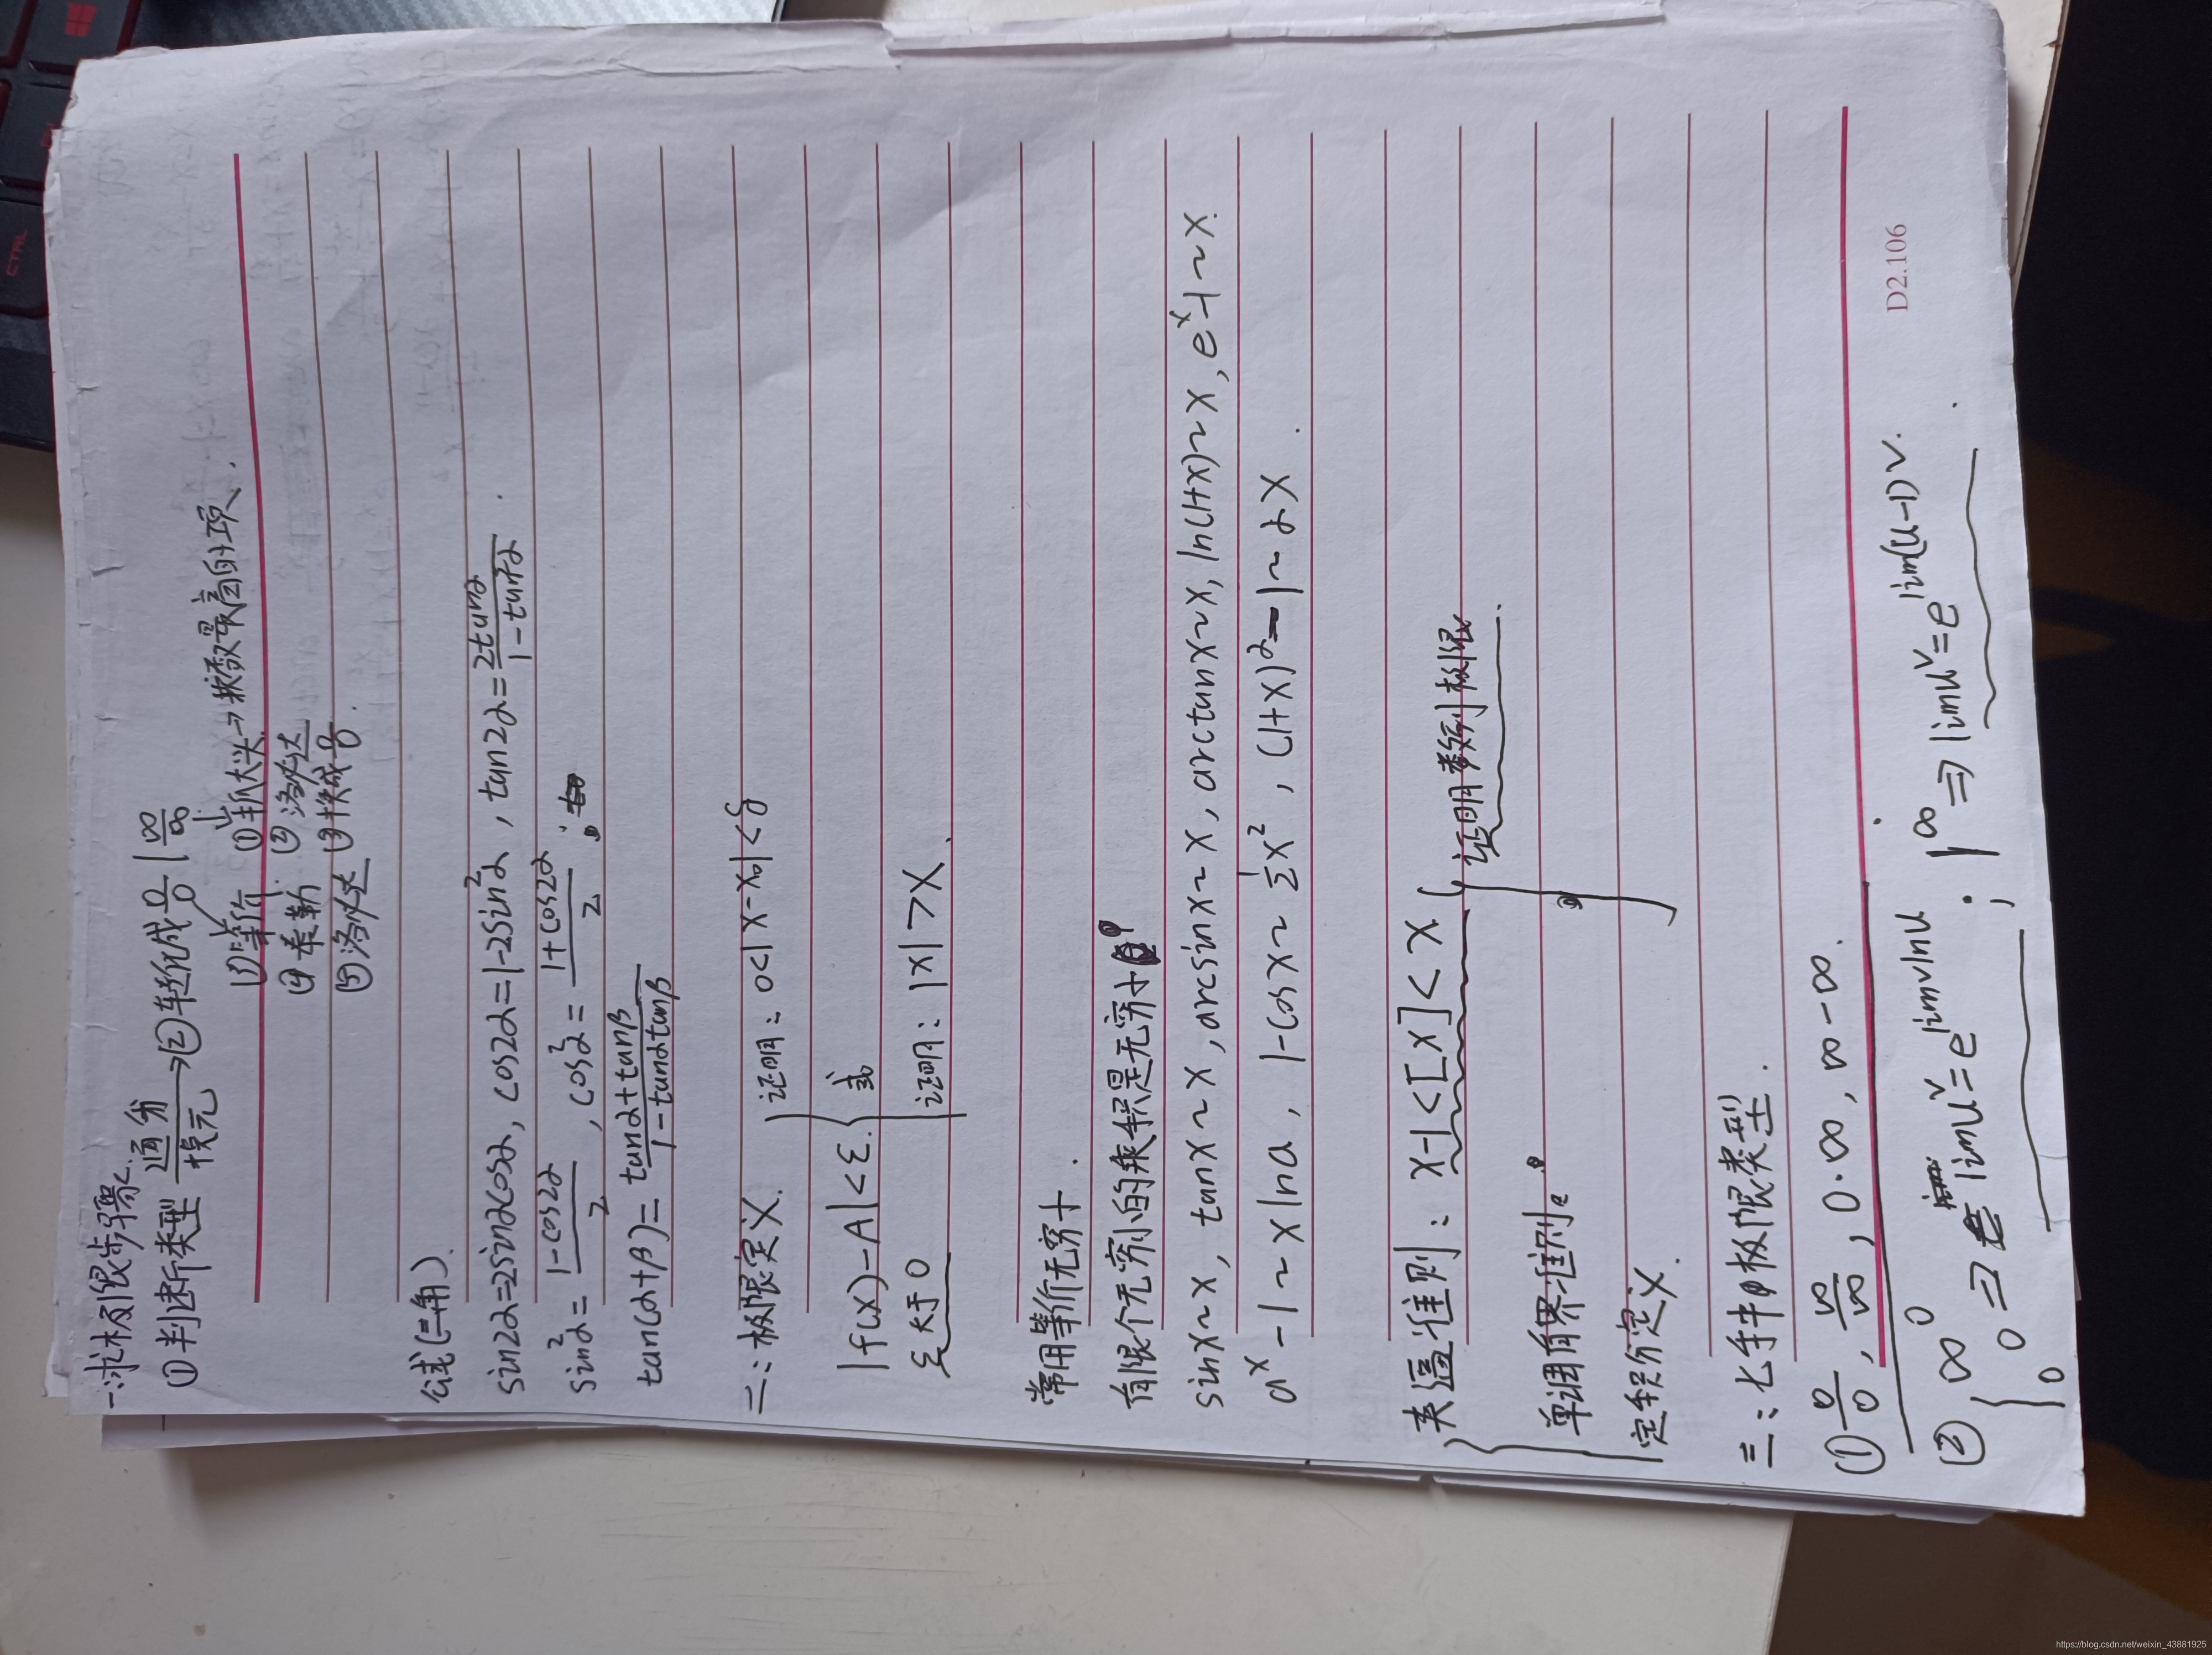 一:求极限步骤.
①判断类型 通分 换元 →②转化成 0/0 | ∞/∞
①等价. ①抓大头→找次数最高的项.
④泰勒 ②洛必达
⑤洛必达 ③换成 0/0.
公式(三角).
sin2α=2sinαcosα, cos2α=1-2sin²α, tan2α=2tanα/1-tan²α.
sin²α=1-cos2α/2, cos²α=1+cos2α/2;
tan(α+β)=tanα+tanβ/1-tanαtanβ
二:极限定义. 证明:0<|x-x₀|<δ
|f(x)-A|<ε. 或
ε大于0 证明:|x|>X.
常用等价无穷小.
有限个无穷小的乘积是无穷小
sinx~x, tanx~x, arcsinx~x, arctanx~x, ln(1+x)~x, eˣ-1~x.
aˣ-1~xlna, 1-cosx~½x², (1+x)^α-1~αx.
夹逼准则: x-1<[x]≤x. 证明数列极限.
单调有界准则.
定积分定义.
三:七种极限类型.
①0/0, ∞/∞, 0·∞, ∞-∞.
②∞⁰ 0⁰ ⇒ limuᵛ=e^limvlnu; 1^∞ ⇒ limuᵛ=e^lim(u-1)v.
D2.106
CTRL
https://blog.csdn.net/weixin_43881925